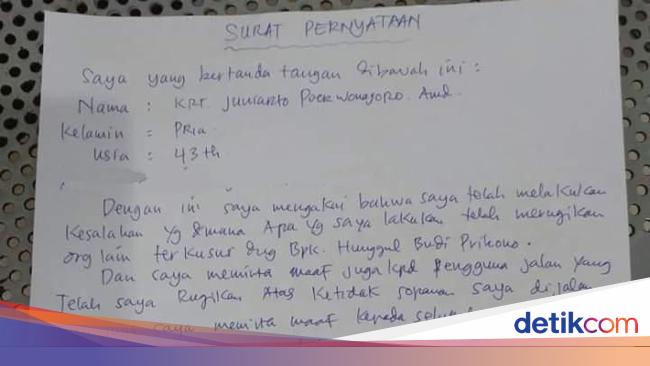 SURAT PERNYATAAN
Saya yang bertanda tangan dibawah ini :
Nama : KRT. Juniarto Poerwonagoro. Amd.
Kelamin : PRia
Usia : 43 th
Dengan ini saya mengakui bahwa saya telah melakukan
Kesalahan yg dmana Apa yg saya lakukan telah merugikan
org lain terkusus dng Bpk. Hunggul Budi Prihono.
Dan saya meminta maaf juga kpd Pengguna jalan yang
Telah saya Rugikan Atas Ketidak sopanan saya di jalan
saya meminta maaf kepada
detikcom